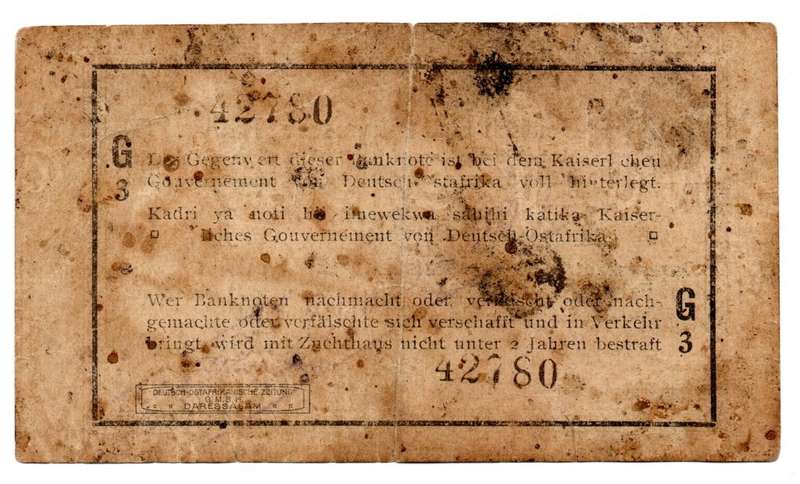 42780
G
3
Der Gegenwert dieser Banknote ist bei dem Kaiserlichen
Gouvernement von Deutsch-Ostafrika voll hinterlegt.
Kadri ya noti hii imewekwa sahihi katika Kaiser-
liches Gouvernement von Deutsch-Ostafrika.
Wer Banknoten nachmacht oder verfälscht oder nach-
gemachte oder verfälschte sich verschafft und in Verkehr
bringt, wird mit Zuchthaus nicht unter 2 Jahren bestraft
G
3
42780
DEUTSCH-OSTAFRIKANISCHE ZEITUNG
G.M.B.H.
DARESSALAM